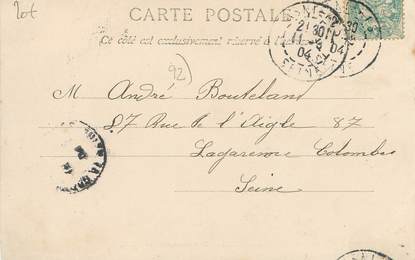 lot
CARTE POSTALE
Ce côté est exclusivement réservé à
21 AOUT
04
92)
M André Bouteland
87 Rue de l'Aigle 87
Lagarenne Colombe
Seine